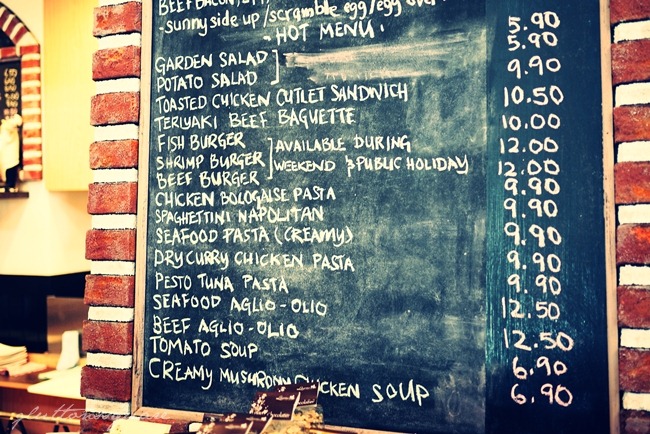 BEEF BACON
-sunny side up /scramble egg/egg over
- HOT MENU -
5.90
GARDEN SALAD 5.90
POTATO SALAD
TOASTED CHICKEN CUTLET SANDWICH 9.90
TERIYAKI BEEF BAGUETTE 10.50
FISH BURGER ] AVAILABLE DURING 10.00
SHRIMP BURGER WEEKEND & PUBLIC HOLIDAY 12.00
BEEF BURGER 12.00
CHICKEN BOLOGAISE PASTA 9.90
SPAGHETTINI NAPOLITAN 9.90
SEAFOOD PASTA (CREAMY) 9.90
DRY CURRY CHICKEN PASTA 9.90
PESTO TUNA PASTA 9.90
SEAFOOD AGLIO-OLIO 12.50
BEEF AGLIO-OLIO 12.50
TOMATO SOUP 6.90
CREAMY MUSHROOM CHICKEN SOUP 6.90